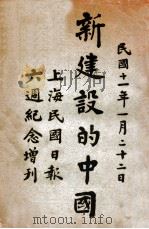 民國十一年一月二十二日
新建設的中國
上海民國日報
六週紀念增刊
mtoou.info